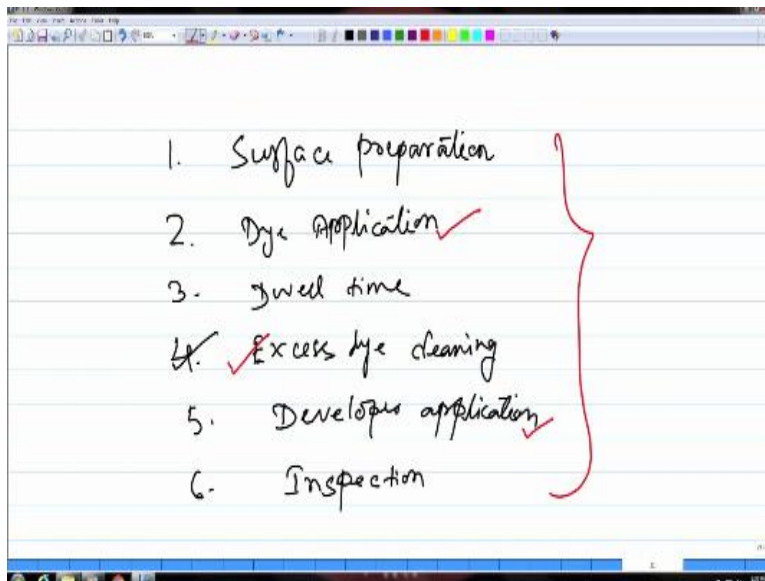 1. Surface preparation
2. Dye Application
3. Dwell time
4. Excess dye cleaning
5. Developer application
6. Inspection